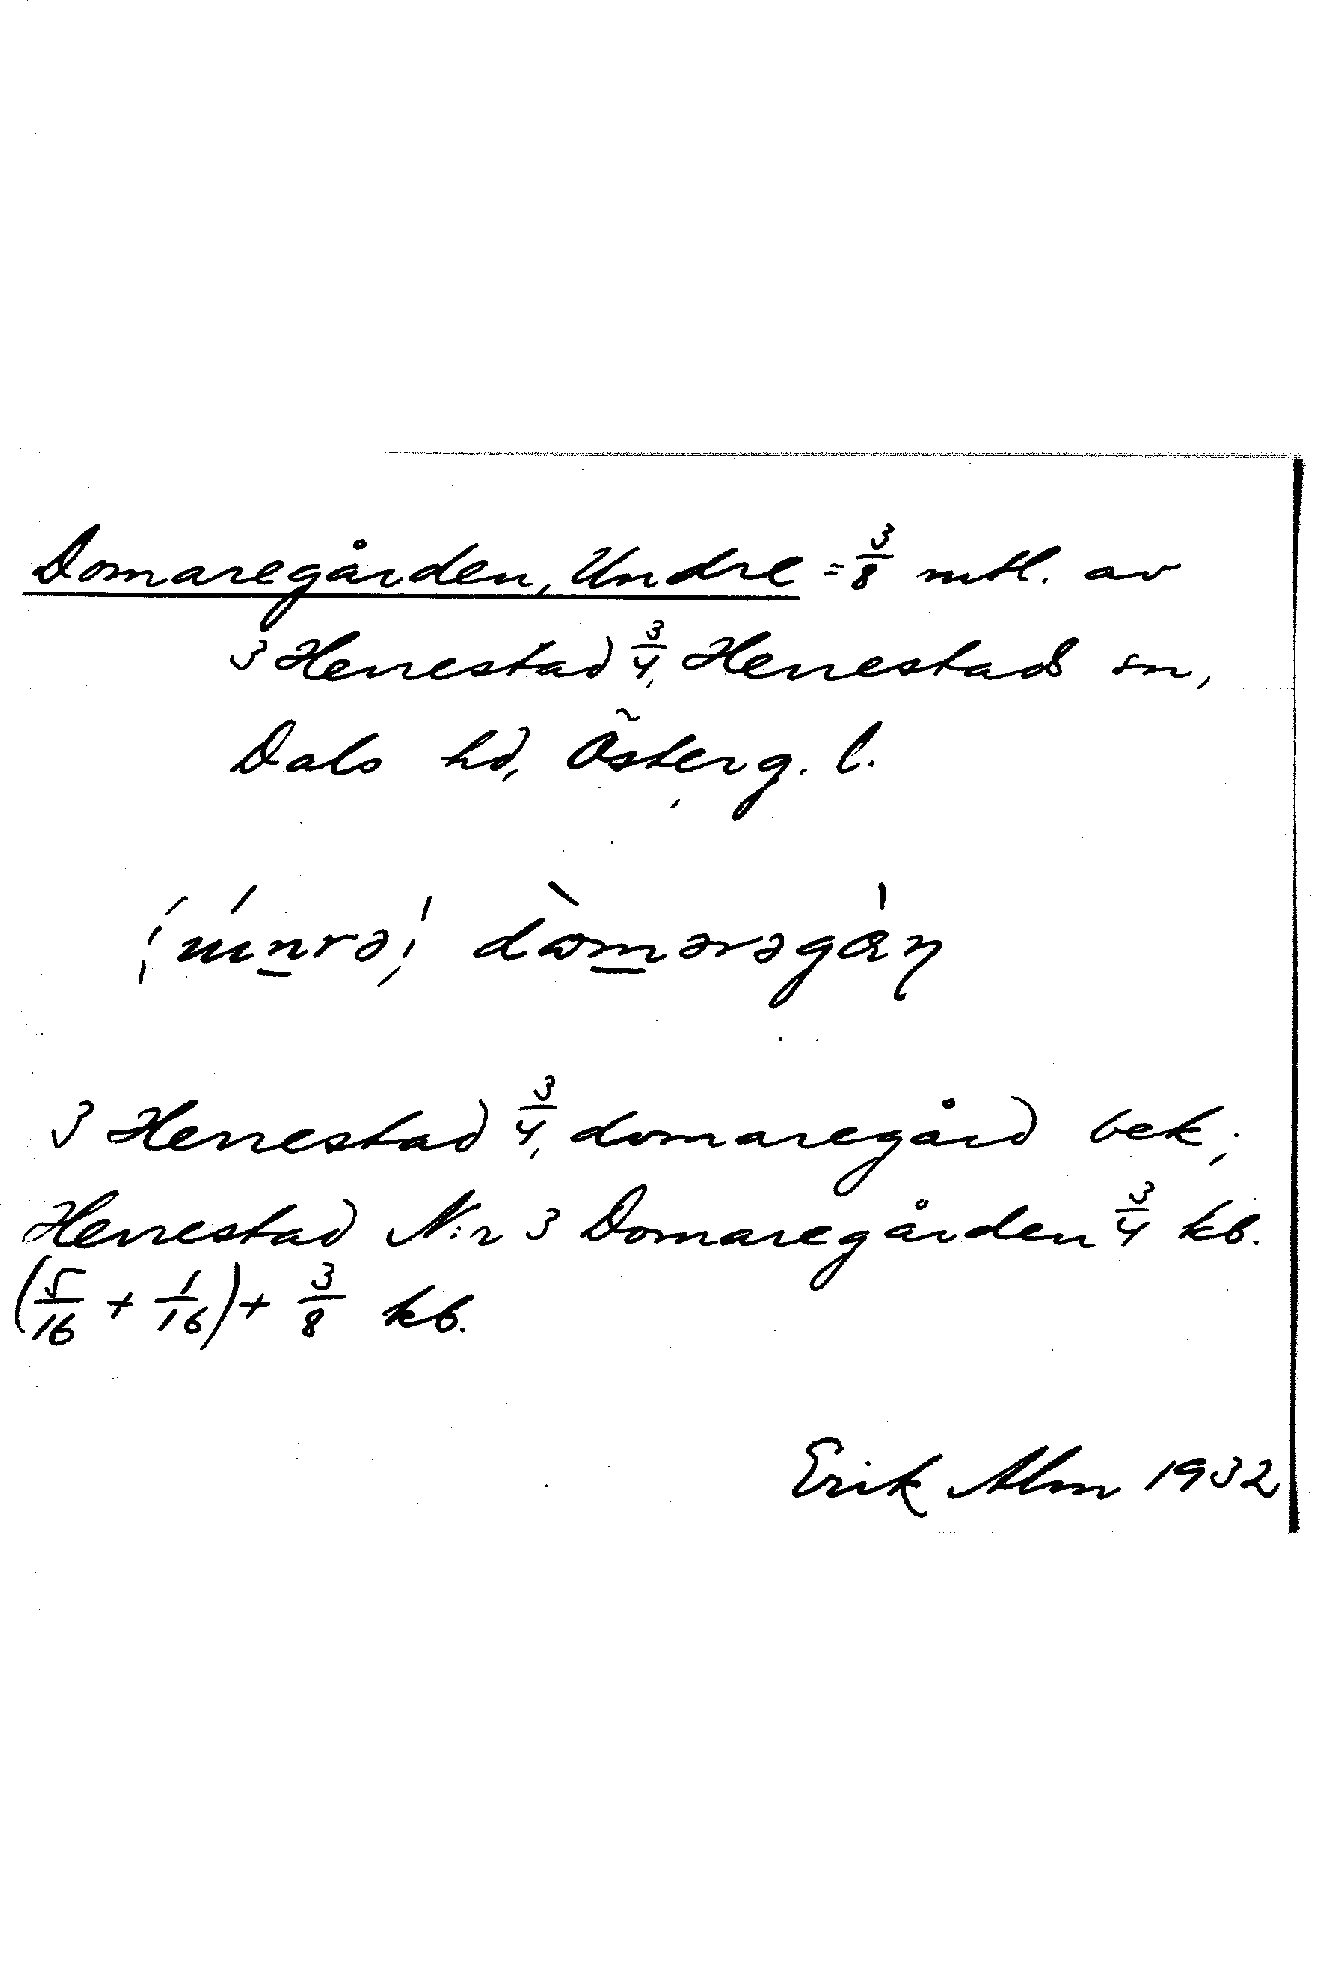 Domaregården, Undre = 3/8 mtl. av
3 Herrestad 3/4, Herrestads sn,
Dals hd, Österg. l.
dòmarəgán
3 Herrestad 3/4, domaregård bek.;
Herrestad N:r 3 Domaregården 3/4 kb.
(5/16 + 1/16) + 3/8 kb.
Erik Alm 1932